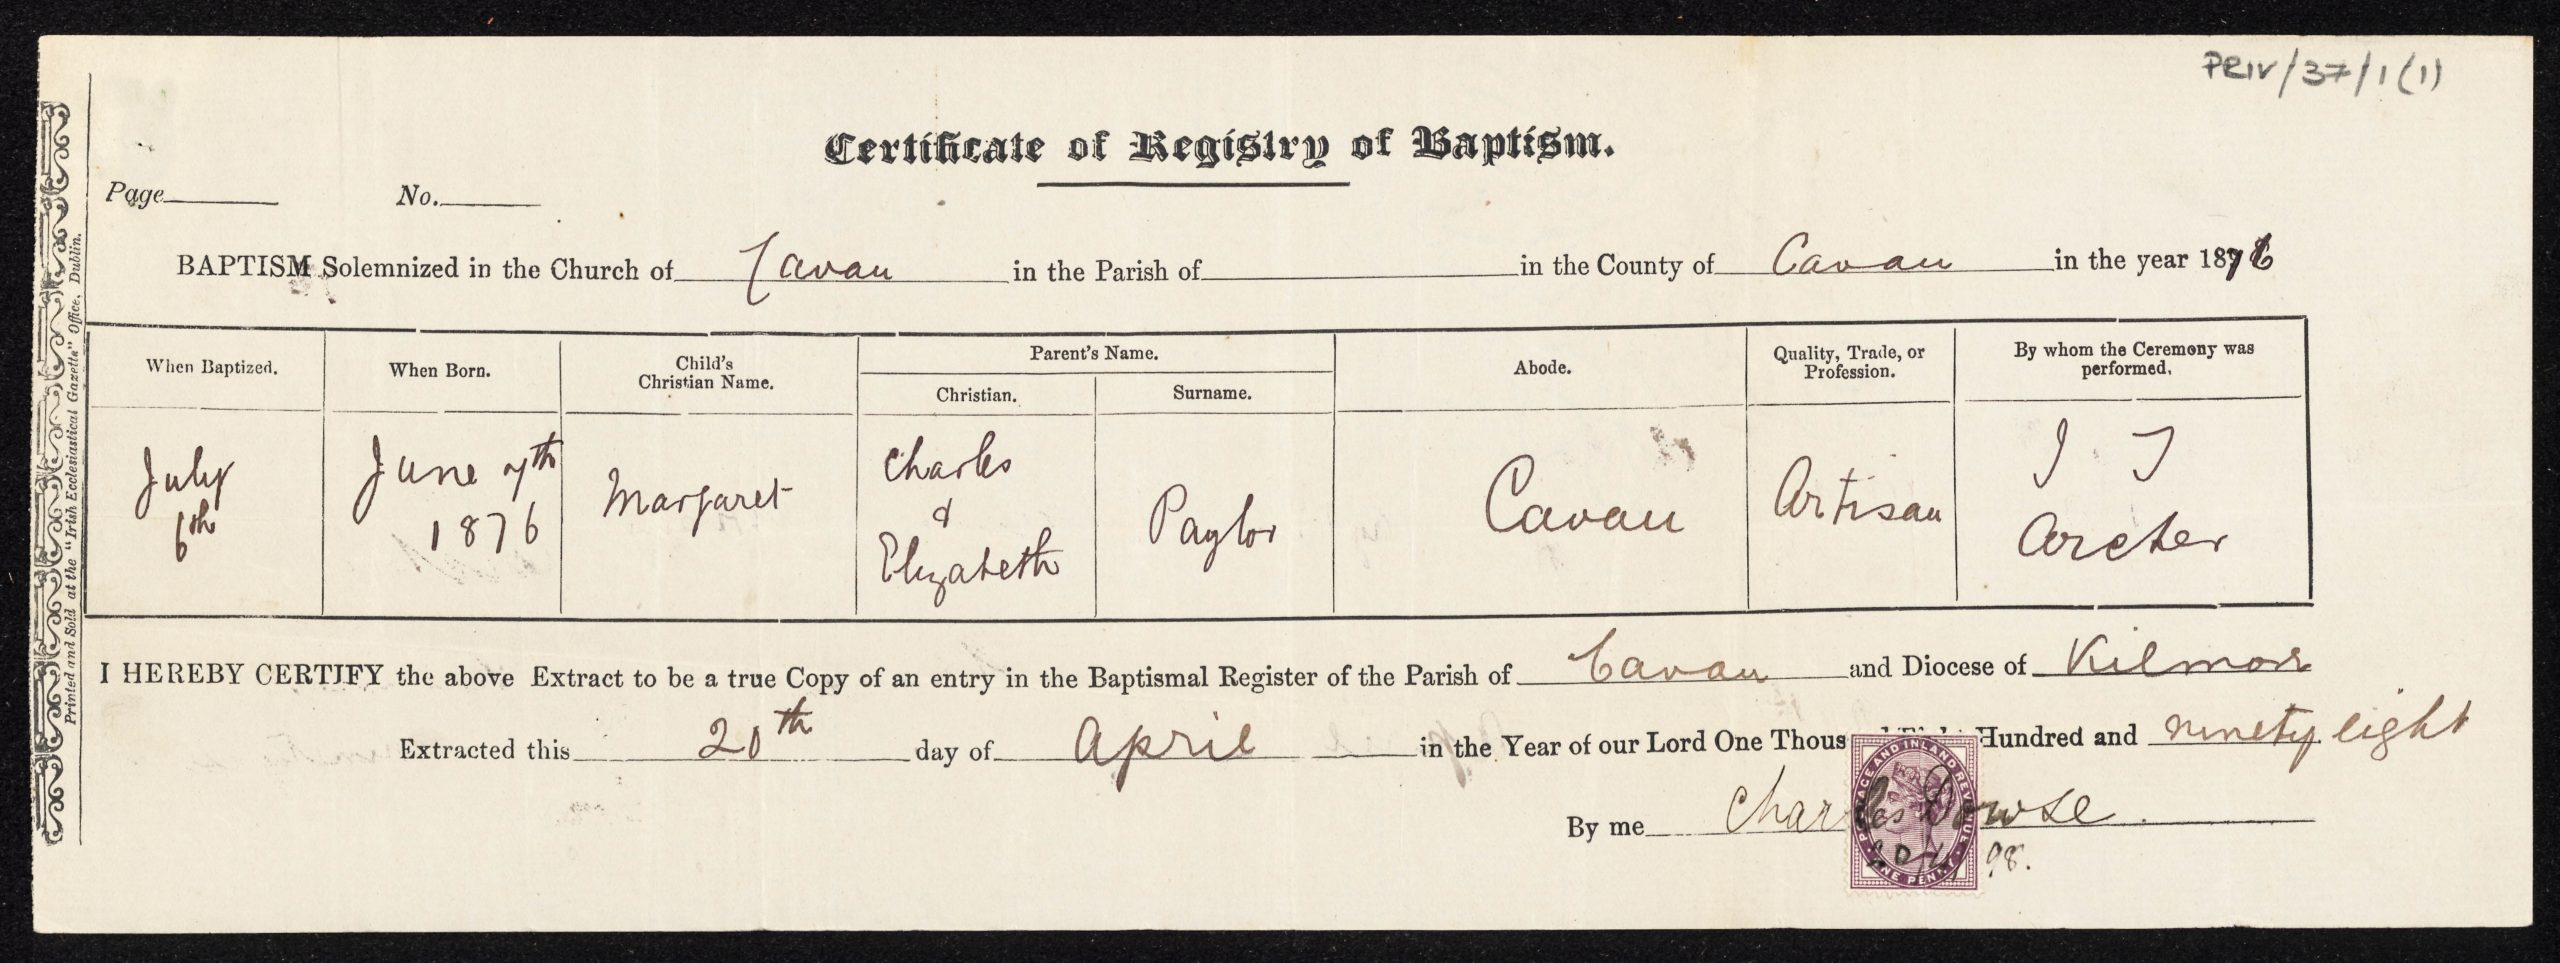 PRIV/37/1(1)
Certificate of Registry of Baptism.
Page No.
BAPTISM Solemnized in the Church of Cavan in the Parish of in the County of Cavan in the year 1876
When Baptized. When Born. Child's Christian Name. Parent's Name. Christian. Surname. Abode. Quality, Trade, or Profession. By whom the Ceremony was performed.
July 6th
June 7th 1876
Margaret
Charles & Elizabeth
Paylor
Cavan
Artisan
J J Archer
I HEREBY CERTIFY the above Extract to be a true Copy of an entry in the Baptismal Register of the Parish of Cavan and Diocese of Kilmore
Extracted this 20th day of April in the Year of our Lord One Thous Hundred and ninety eight
By me Charles Dowse
20/4/98.
POSTAGE AND INLAND REVENUE
ONE PENNY
Printed and Sold at the "Irish Ecclesiastical Gazette" Office, Dublin.